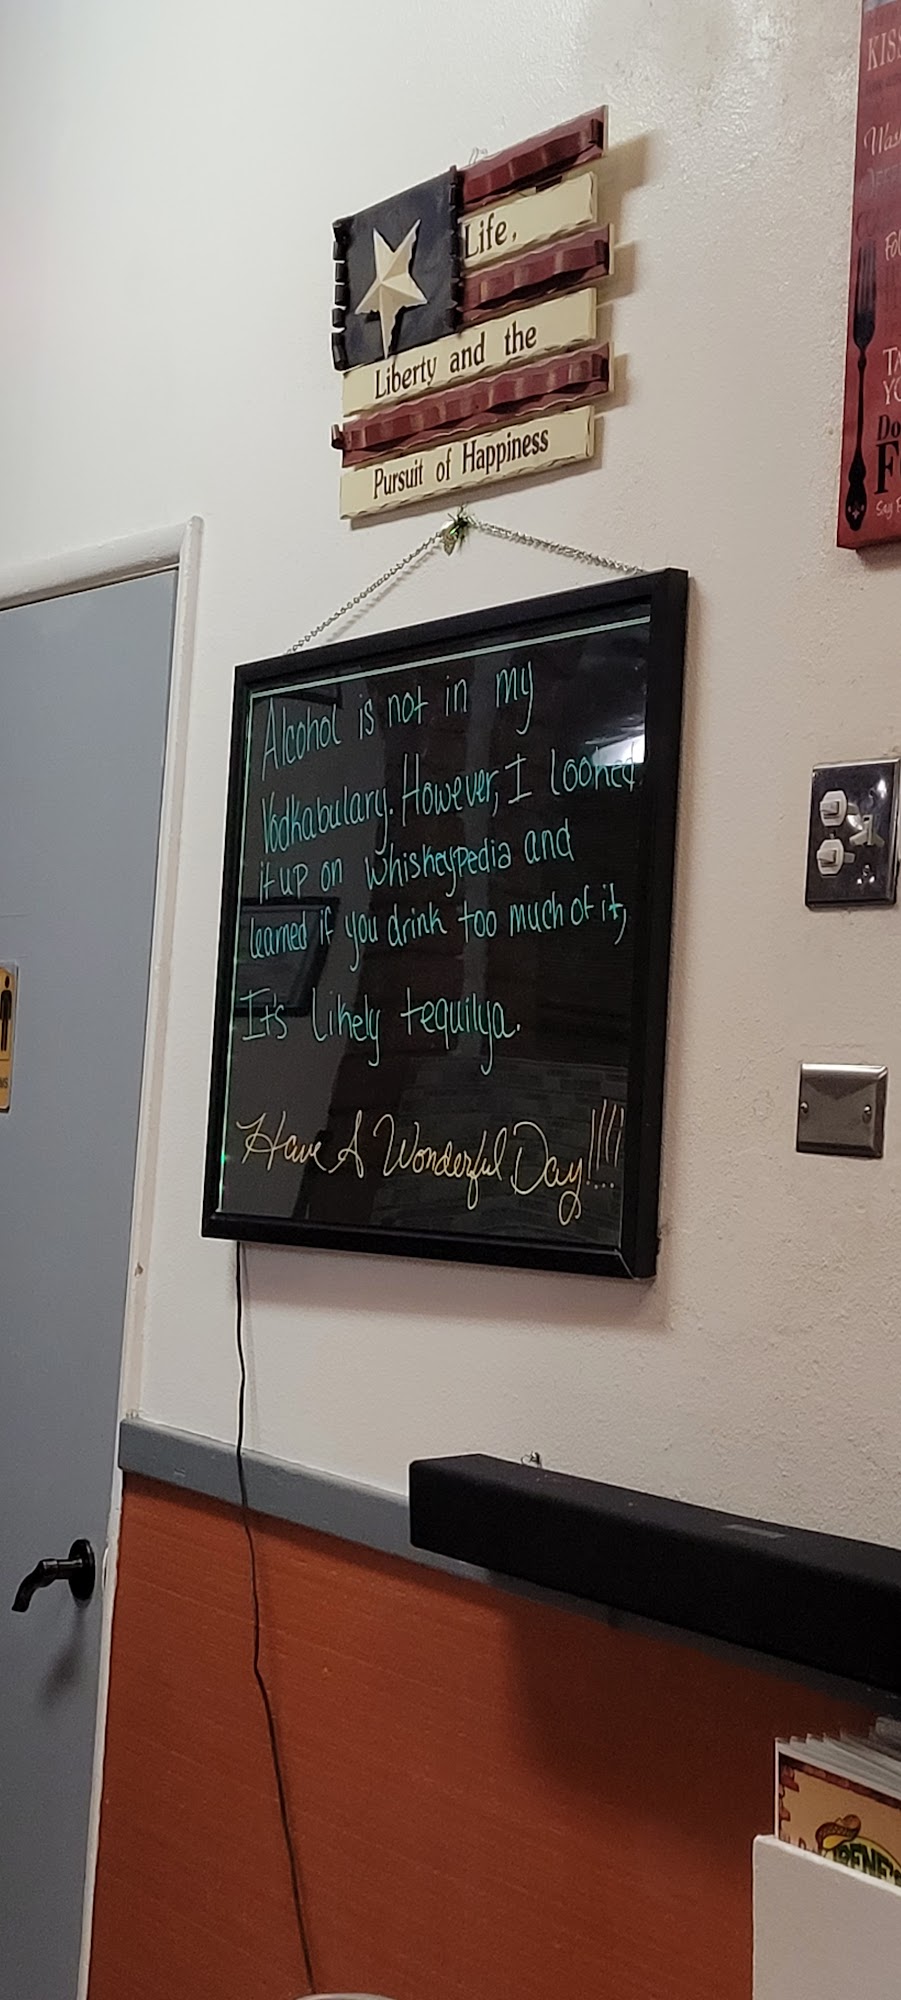 Life,
Liberty and the
Pursuit of Happiness
Alcohol is not in my
Vodkabulary. However, I looked
it up on whiskeypedia and
learned if you drink too much of it,
It's likely tequilya.
Have A Wonderful Day!!!!!
KISS
TA
YO
Do
F